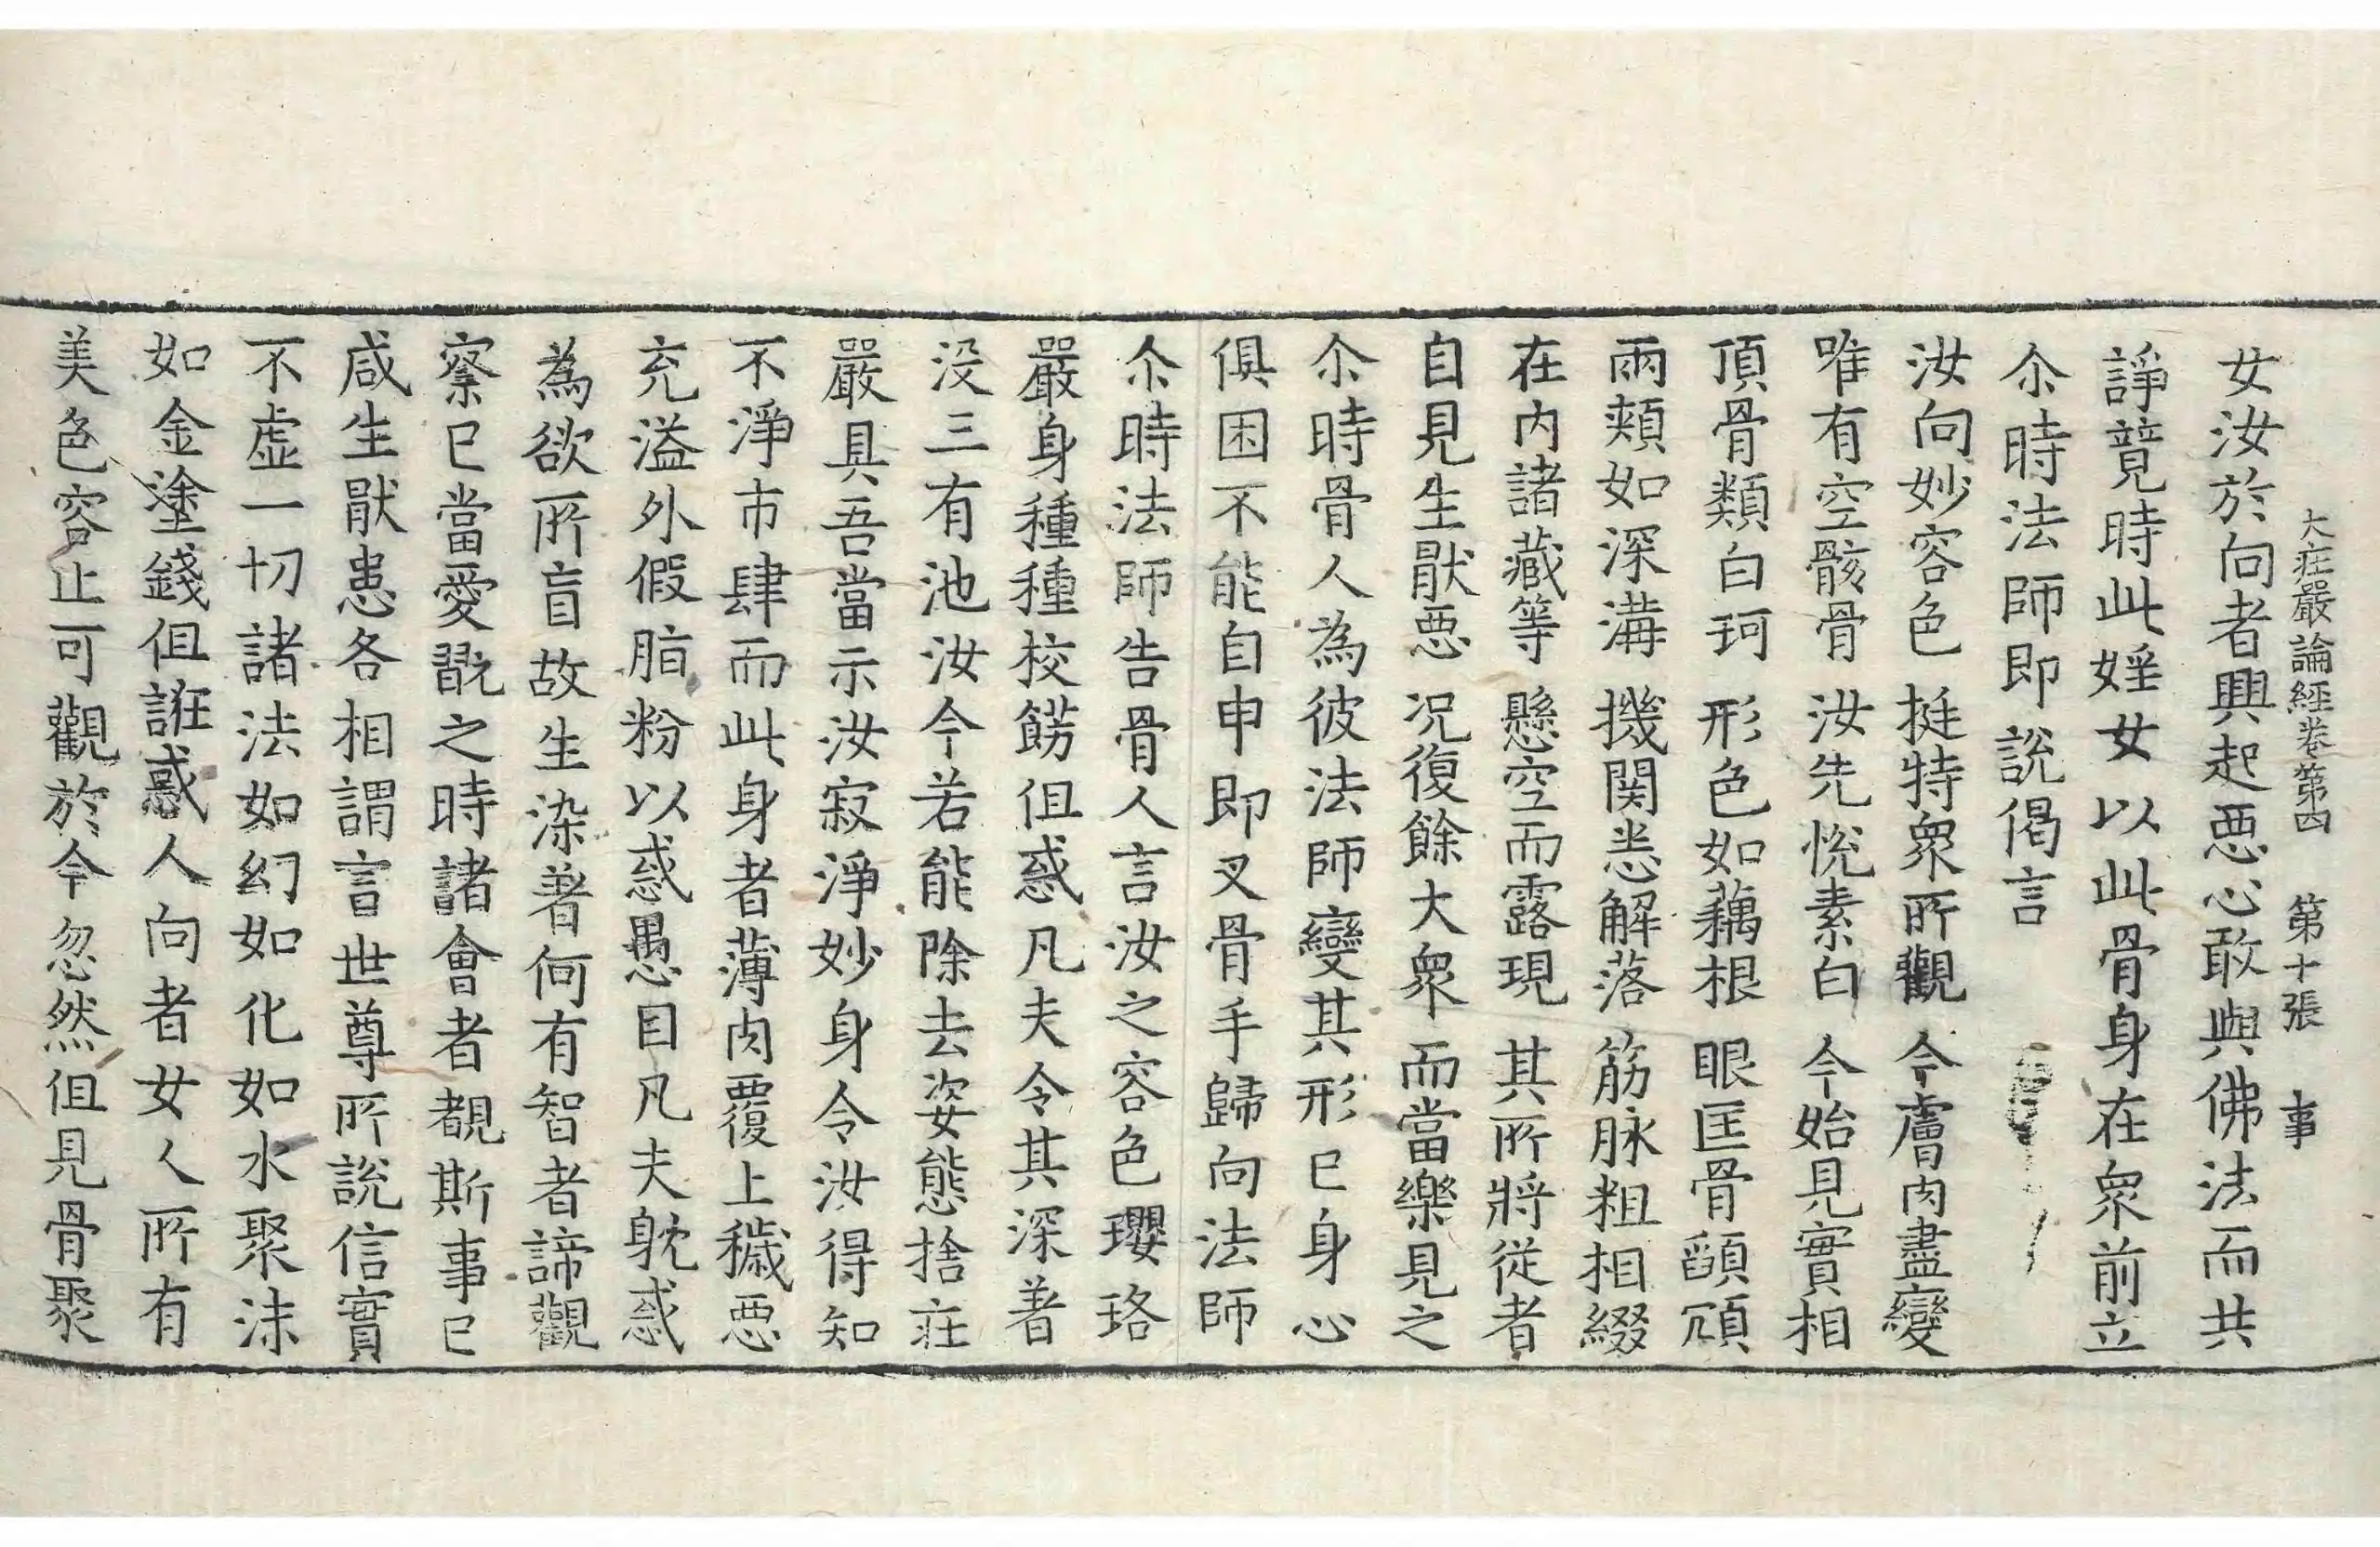 大莊嚴論經卷第四　第十張　事
女汝於向者興起惡心敢與佛法而共
諍竟時此婬女以此骨身在衆前立
尒時法師即說偈言
汝向妙容色　挺特衆所觀　今膚肉盡變
唯有空骸骨　汝先恱素白　今始見實相
頂骨類白珂　形色如藕根　眼匡骨䫲頎
兩頰如深溝　機関悉解落　筋脉粗相綴
在内諸藏等　懸空而露現　其所將從者
自見生猒惡　况復餘大衆　而當樂見之
尒時骨人為彼法師變其形已身心
俱困不能自申即叉骨手歸向法師
尒時法師告骨人言汝之容色瓔珞
嚴身種種校餝但惑凡夫令其深著
没三有池汝今若能除去姿態捨莊
嚴具吾當示汝寂淨妙身令汝得知
不淨市肆而此身者薄肉覆上穢惡
充溢外假脂粉以惑愚目凡夫躭惑
為欲所盲故生染著何有智者諦觀
察已當愛翫之時諸會者覩斯事已
咸生猒患各相謂言世尊所說信實
不虛一切諸法如幻如化如水聚沫
如金塗錢但誑惑人向者女人所有
美色容止可觀於今忽然但見骨聚